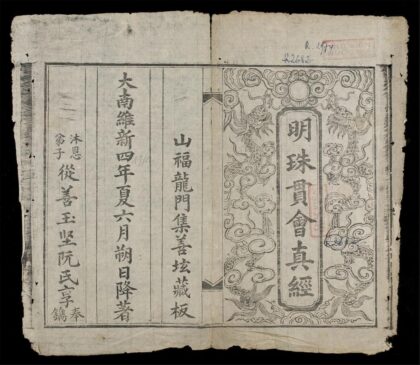 明珠貫會真經
山福龍門集善坛藏板
大南維新四年夏六月朔日降著
沐恩苐子從善玉坚阮氏享奉鐫